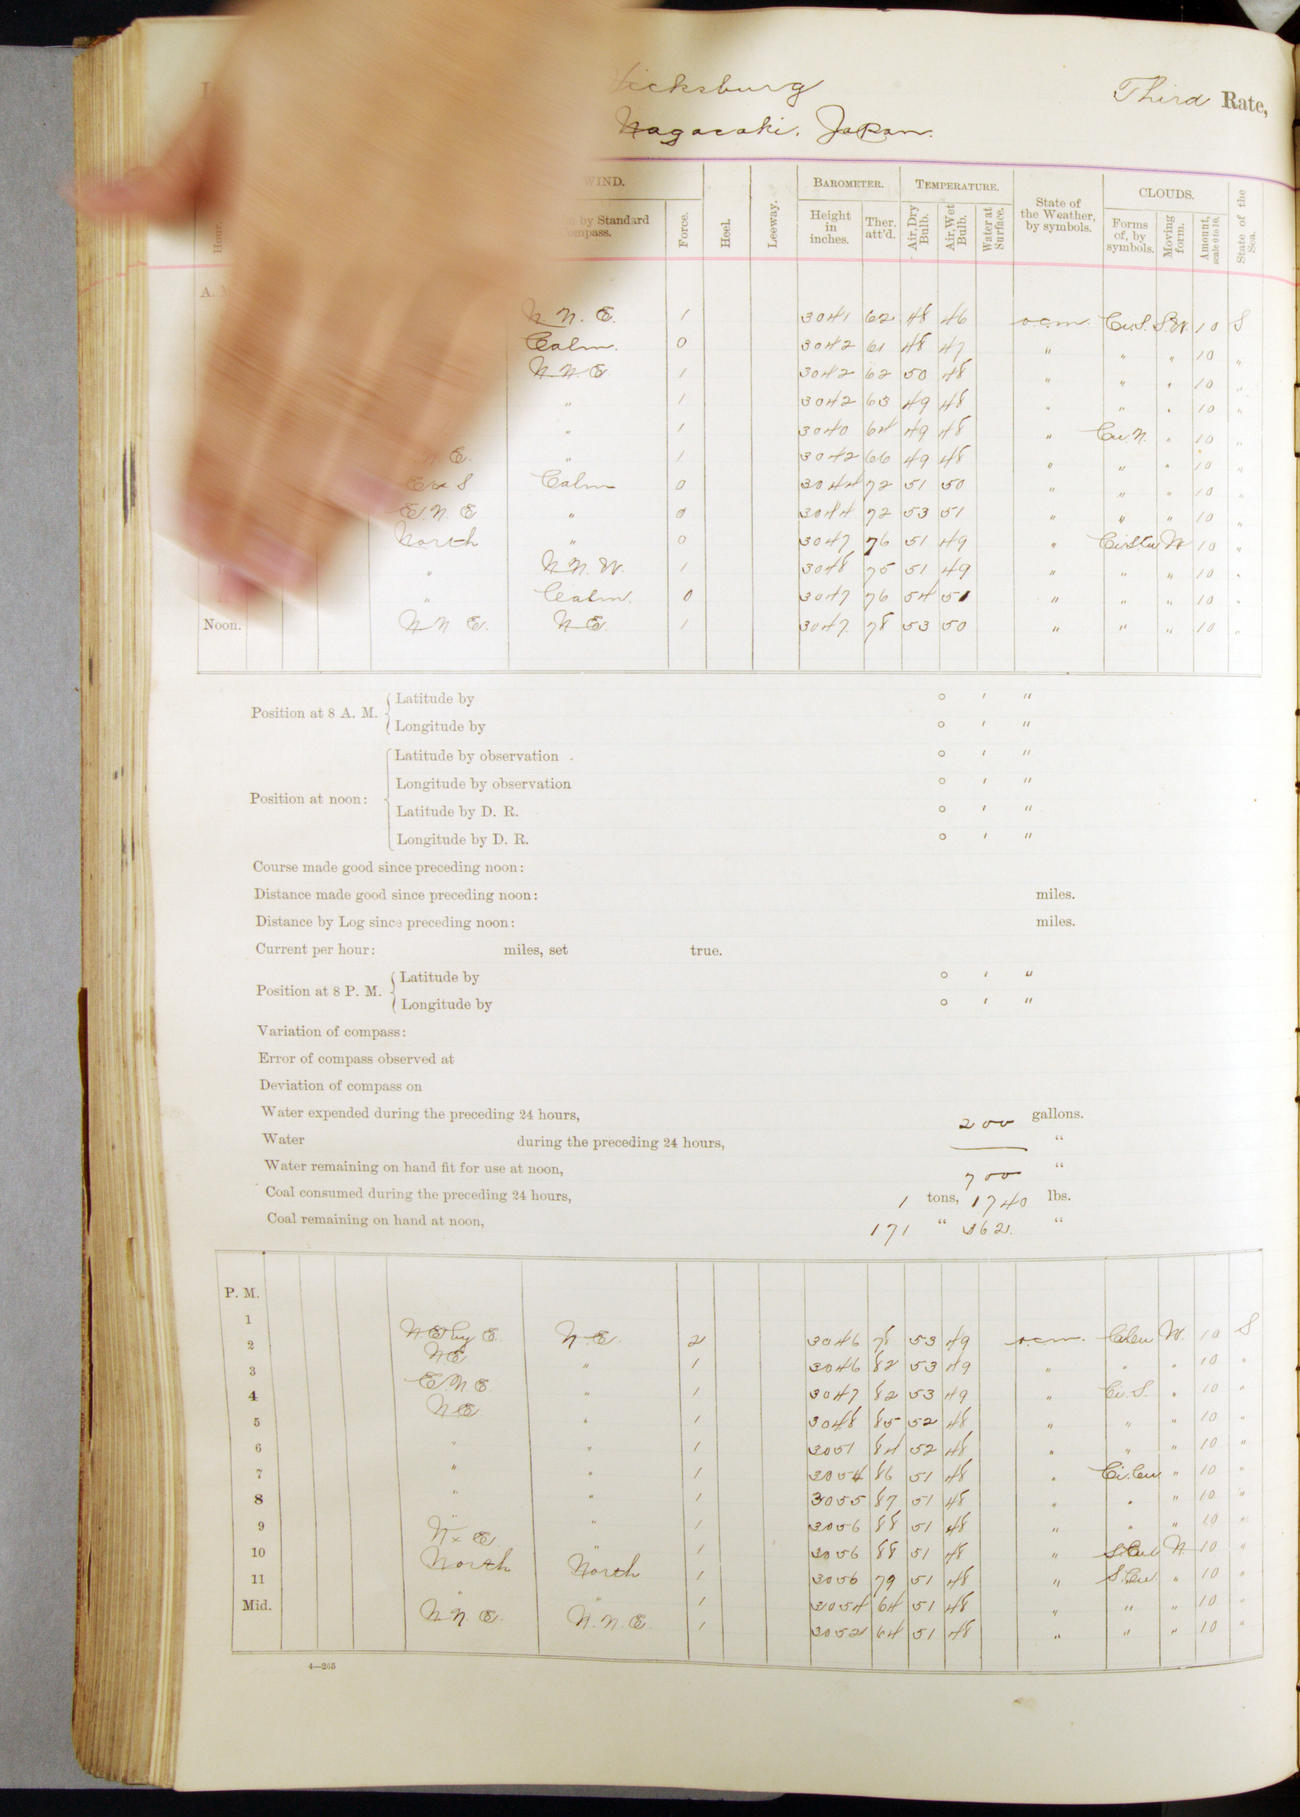 Vicksburg Third Rate,
Nagasaki, Japan.
WIND. BAROMETER. TEMPERATURE. CLOUDS.
Hour. by Standard Compass. Force. Heel. Leeway. Height in inches. Ther. att'd. Air, Dry Bulb. Air, Wet Bulb. Water at Surface. State of the Weather, by symbols. Forms of, by symbols. Moving form. Amount, scale 0 to 10. State of the Sea.
N. N. E. 1 3041 62 48 46 o.c.m. Cu.S. S.W. 10 S
Calm. 0 3042 61 48 47 " " " 10 "
N. N. E 1 3042 62 50 48 " " " 10 "
" 1 3042 63 49 48 " " " 10 "
" 1 3040 64 49 48 " Cu. N. " 10 "
N. E. " 1 3042 66 49 48 " " " 10 "
E x S Calm 0 3044 72 51 50 " " " 10 "
E. N. E " 0 3044 72 53 51 " " " 10 "
North " 0 3047 76 51 49 " W 10 "
" N. N. W. 1 3048 75 51 49 " " " 10 "
" Calm. 0 3047 76 54 51 " " " 10 "
Noon. N N E. N. E. 1 3047 78 53 50 " " " 10 "
Position at 8 A. M. Latitude by ° ' "
Longitude by ° ' "
Position at noon: Latitude by observation ° ' "
Longitude by observation ° ' "
Latitude by D. R. ° ' "
Longitude by D. R. ° ' "
Course made good since preceding noon:
Distance made good since preceding noon: miles.
Distance by Log since preceding noon: miles.
Current per hour: miles, set true.
Position at 8 P. M. Latitude by ° ' "
Longitude by ° ' "
Variation of compass:
Error of compass observed at
Deviation of compass on
Water expended during the preceding 24 hours, 200 gallons.
Water during the preceding 24 hours, — "
Water remaining on hand fit for use at noon, 700 "
Coal consumed during the preceding 24 hours, 1 tons, 1740 lbs.
Coal remaining on hand at noon, 171 " 362. "
P. M.
1 N.E by E. N. E. 2 3046 78 53 49 o.c.m. W. 10 S
2 N.E " 1 3046 82 53 49 " " " 10 "
3 E. N. E. " 1 3047 82 53 49 " Cu. S. " 10 "
4 N. E " 1 3048 85 52 48 " " " 10 "
5 " " 1 3051 84 52 48 " " " 10 "
6 " " 1 3054 86 51 48 " Ci. Cu " 10 "
7 " " 1 3055 87 51 48 " " " 10 "
8 " " 1 3056 88 51 48 " " " 10 "
9 N. x E. " 1 3056 88 51 48 " S. Cu N. 10 "
10 North North 1 3056 79 51 48 " S. Cu " 10 "
11 " " 1 3054 64 51 48 " " " 10 "
Mid. N. N. E. N. N. E. 1 3052 64 51 48 " " " 10 "
4—265